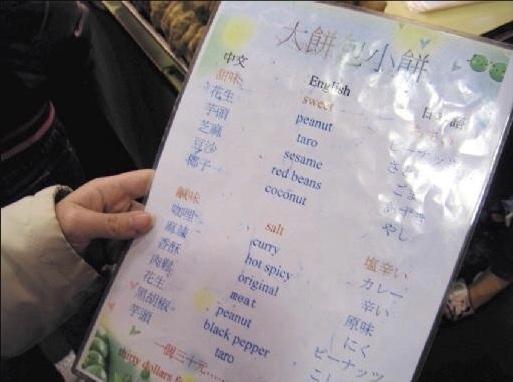 大餅包小餅
中文 English 日本語
甜味 sweet
花生 peanut ピーナッツ
芋頭 taro
芝麻 sesame ごま
豆沙 red beans あずき
椰子 coconut やし
鹹味 salt 塩辛い
咖哩 curry カレー
麻辣 hot spicy 辛い
香酥 original 原味
肉鬆 meat にく
花生 peanut ピーナッツ
黑胡椒 black pepper こし
芋頭 taro
一個三十元......
thirty dollars